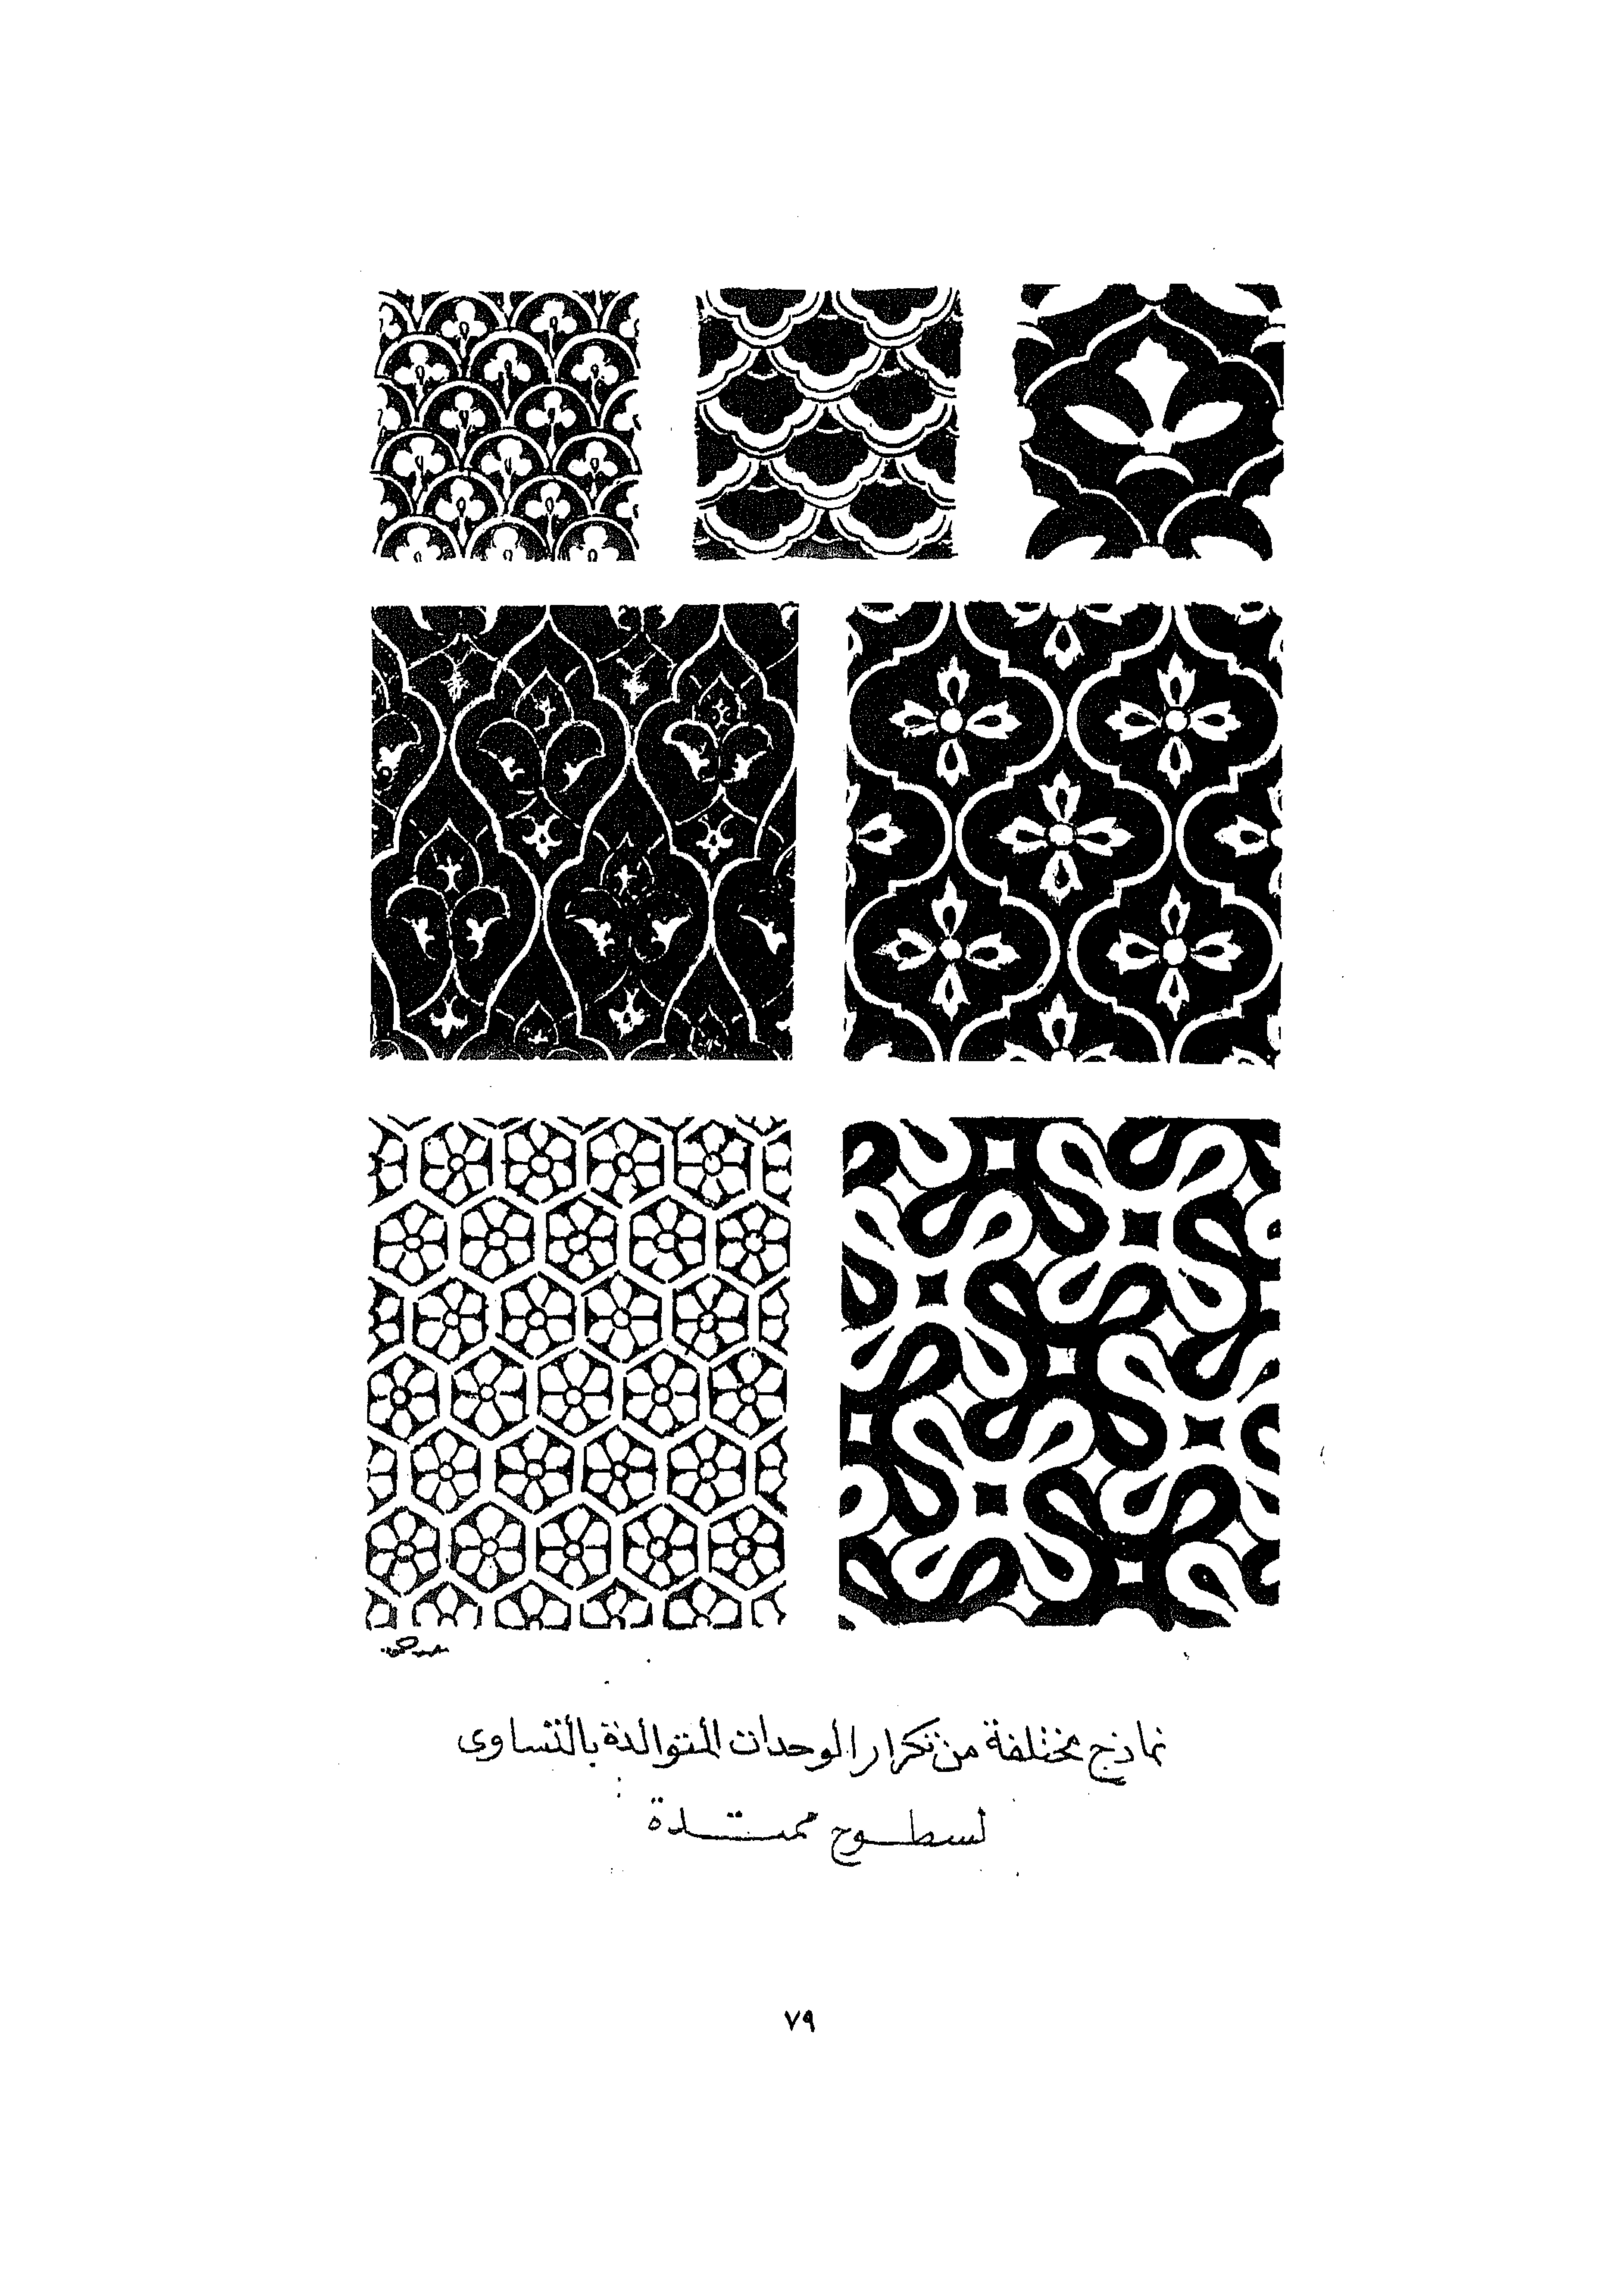 نماذج مختلفة من تكرار الوحدات المتوالدة بالتساوى
لسطوح ممتدة
٧٩